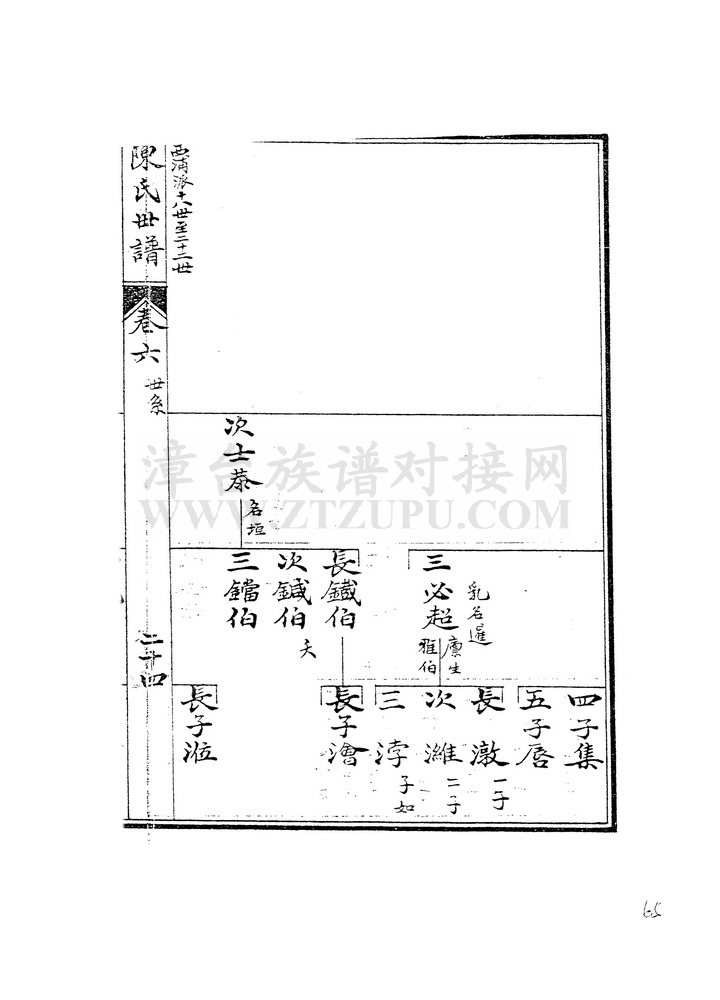 四子集
五子唇
長潡
一子
次濰
二子
三浡
子如
三必超
乳名暹
廩生
雅伯
長鐵伯
長子濸
次鍼伯
夭
三鐺伯
次士恭
名垣
長子涖
西浦派十八世至二十二世
陳氏世譜
卷六
世系
二十四
漳台族谱对接网
WWW.ZTZUPU.COM
65